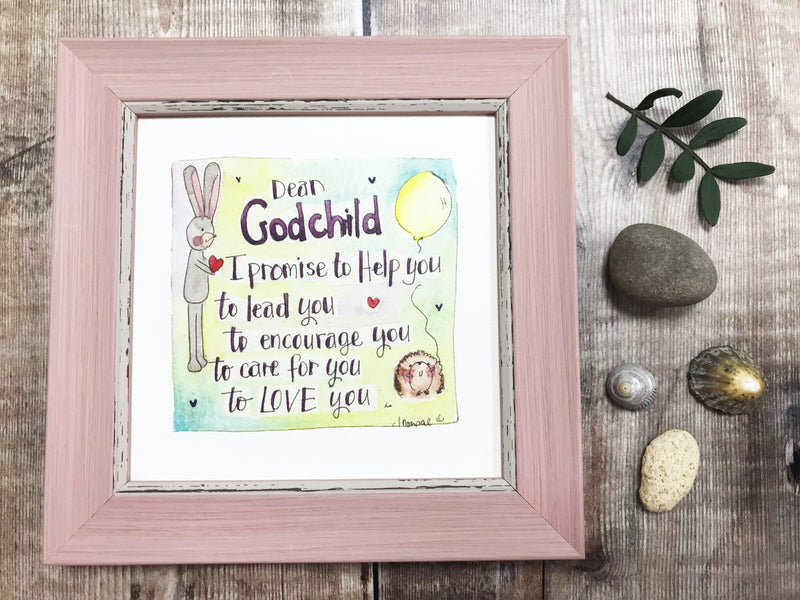 Dear
Godchild
I promise to Help you
to lead you
to encourage you
to care for you
to LOVE you